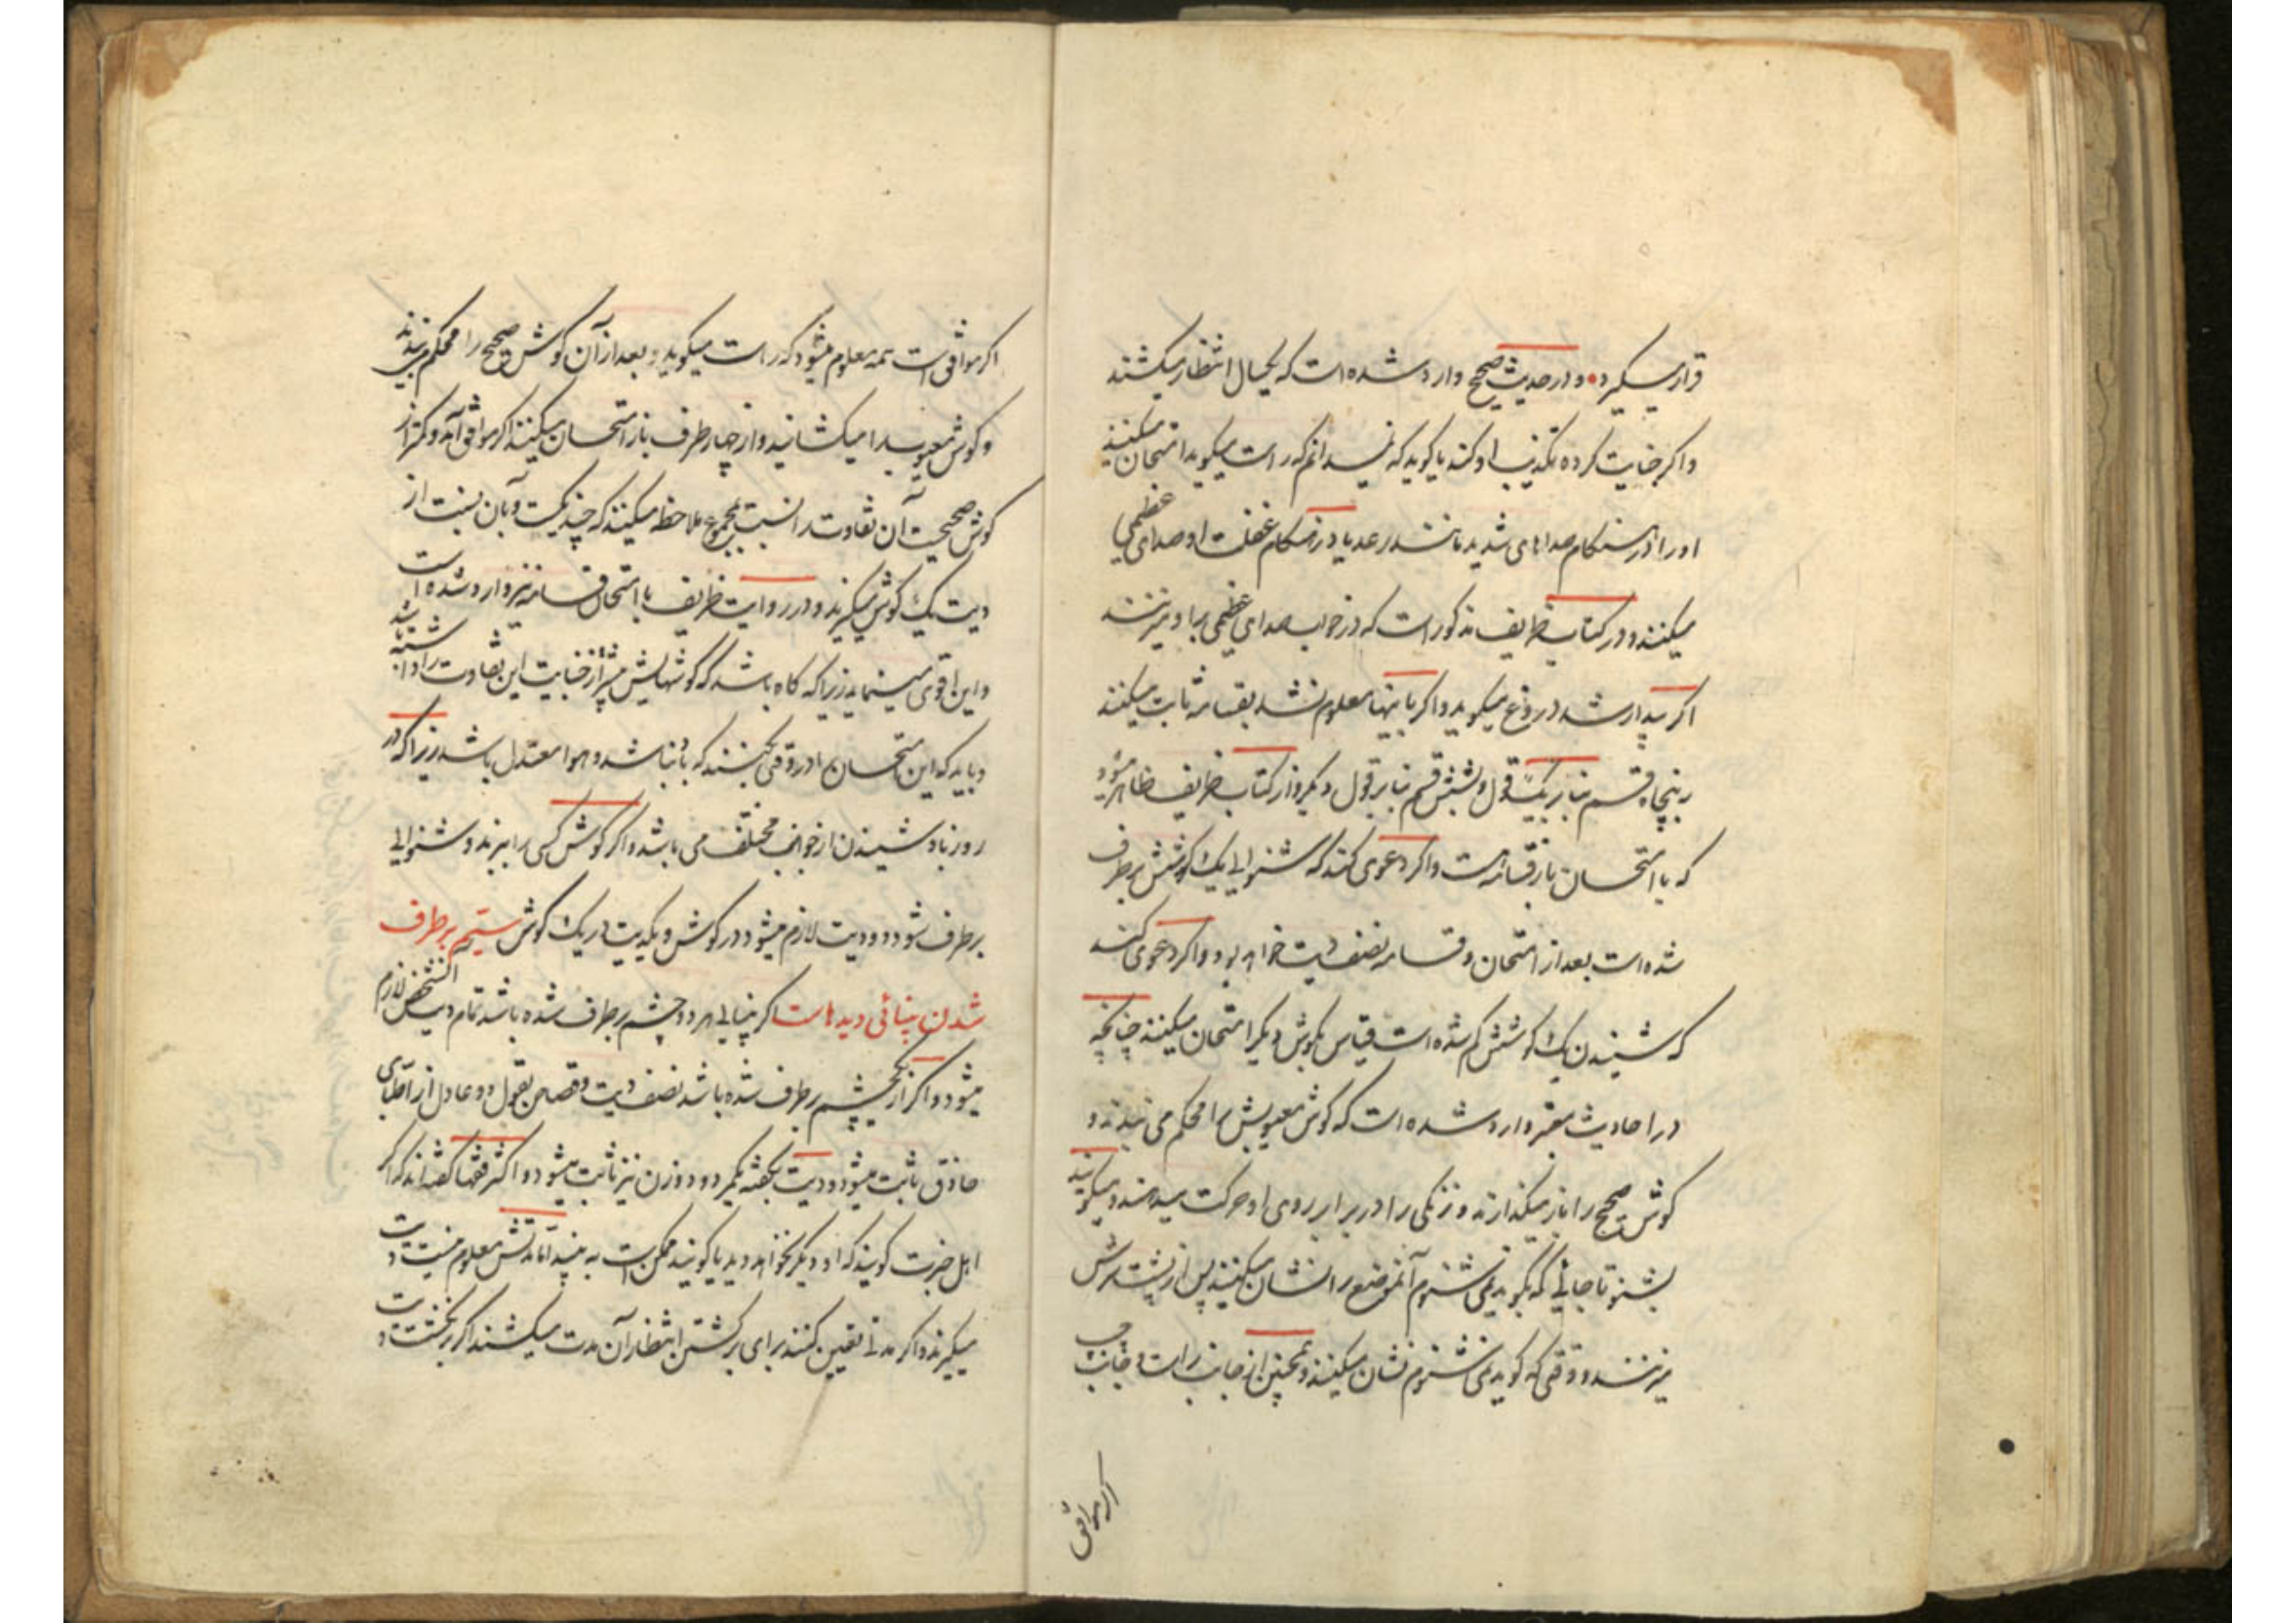 قرار میگیرد و در حدیث صحیح وارد شده است که یکسال انتظار میکشند
و اگر جنایت کرده تکذیب او کند یا گوید که نمیدانم که راست میگوید امتحان میکنند
او را در هنگام صداهای شدید مانند رعد یا در هنگام غفلت او صدای عظیمی
میکنند و در کتاب ظریف مذکور است که در خواب صدای عظیمی بر او میزنند
اگر بیدار شد دروغ میگوید و اگر باینها معلوم نشد بقسامه ثابت میکنند
بپنجاه قسم بنا بر یک قول و بشش قسم بنا بر قول دیگر و از کتاب ظریف ظاهر میشود
که با امتحان باز قسامه هست و اگر دعوی کند که شنوایی یک گوشش بر طرف
شده است بعد از امتحان و قسامه نصف دیت خواهد بود و اگر دعوی کند
که شنیدن یک گوشش کم شده است قیاس بگوش دیگر امتحان میکنند چنانچه
در احادیث معتبره وارد شده است که گوش معیوبش را محکم می بندند و
گوش صحیح را باز میگذارند و زنگی را در برابر روی او حرکت میدهند و میگویند
بشنو تا جائی که بگوید نمی شنوم آنموضع را نشان میکنند پس از پشت سرش
میزنند و وقتی که گوید نمی شنوم نشان میکنند و همچنین از جانب راست و جانب چپ
اگر موافق
اگر موافق است همه معلوم میشود که راست میگوید و بعد از آن گوش صحیح را محکم می بندند
و گوش معیوب را میگشایند و از چهار طرف باز امتحان میکنند اگر موافق آمد و کمتر از
گوش صحیحست آن تفاوت را نسبت بمجموع ملاحظه میکنند که چند یکست و بآن نسبت از
دیت یک گوش میگیرند و در روایت ظریف با امتحان قسامه نیز وارد شده است
و این اقوی مینماید زیرا که گاه باشد که گوشهایش پیش از جنایت این تفاوت را داشته باشد
و باید که این امتحان را در وقتی بکنند که باد نباشد و هوا معتدل باشد زیرا که در
روز باد شنیدن از جوانب مختلف می باشد و اگر گوش کسی را ببرند و شنوایی
بر طرف شود دو دیت لازم میشود در دو گوش و یکدیت در یک گوش سیّم بر طرف
شدن بینائی دیدهاست اگر بینایی هر دو چشم بر طرف شده باشد تمام دیت آنشخص لازم
میشود و اگر از یکچشم بر طرف شده باشد نصف دیت و قصاص بقول دو عادل از اطبای
حاذق ثابت میشود و دیت بگفته یکمرد و دو زن نیز ثابت میشود و اکثر فقها گفته اند که اگر
اهل خبرت گویند که او دیگر نخواهد دید یا گویند ممکن است به بیند اما مدتش معلوم نیست دیت
میگیرند و اگر مدتی تعیین کنند برای برگشتن انتظار آن مدت میکشند اگر برنگشت دیت